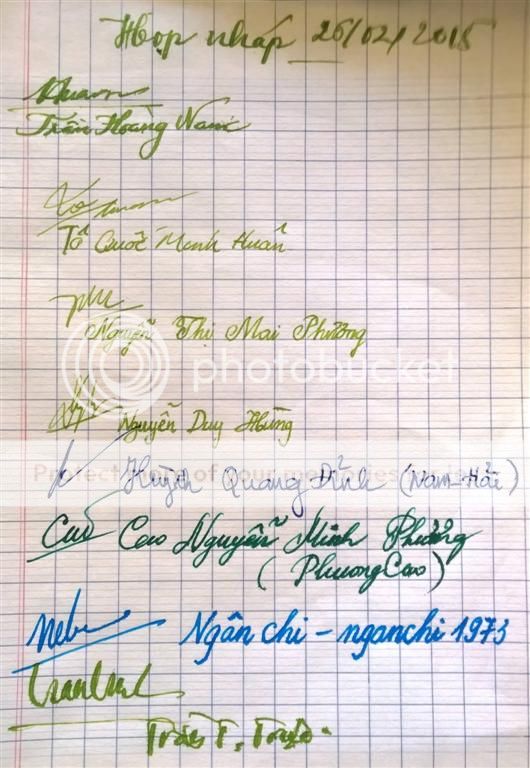 Họp nháp 26/02/2015
Trần Hoàng Nam
Tô Quốc Minh Huân
Nguyễn Thị Mai Phương
photobucket
Nguyễn Duy Hùng
Protect more of your memories for less!
Huỳnh Quang Đỉnh (Nam-Hải)
Cao Cao Nguyễn Minh Phương
(PhuongCao)
Ngân chi - nganchi 1973
Trần T.